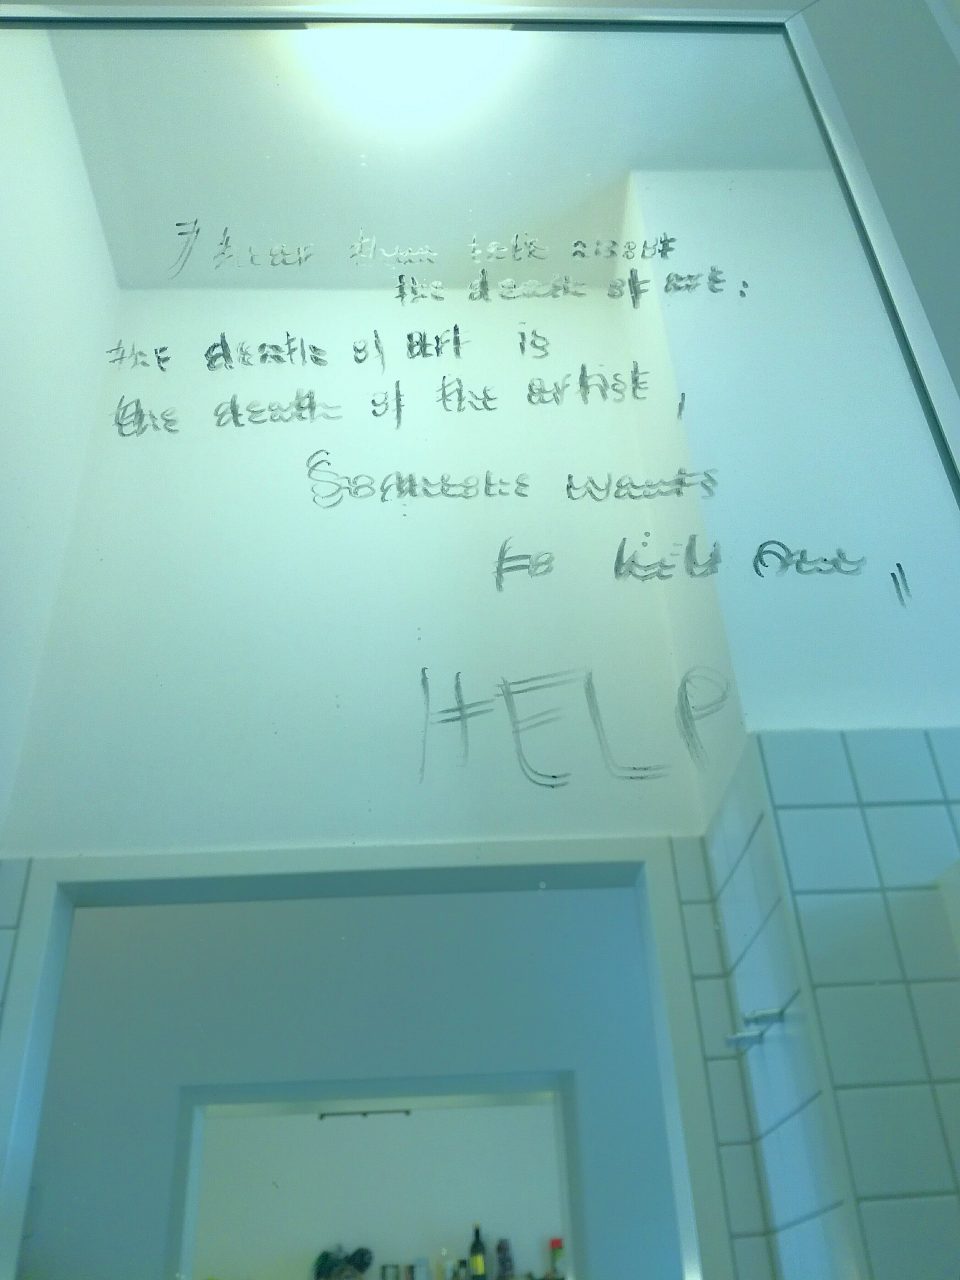 I hear them talk about
the death of art:
the death of art is
the death of the artist,
Someone wants
to kill me"
HELP